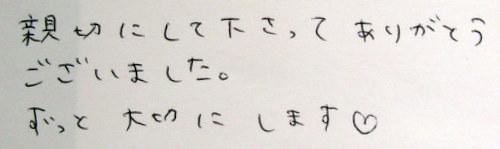 親切にして下さって ありがとう
ございました。
ずっと 大切に します♡